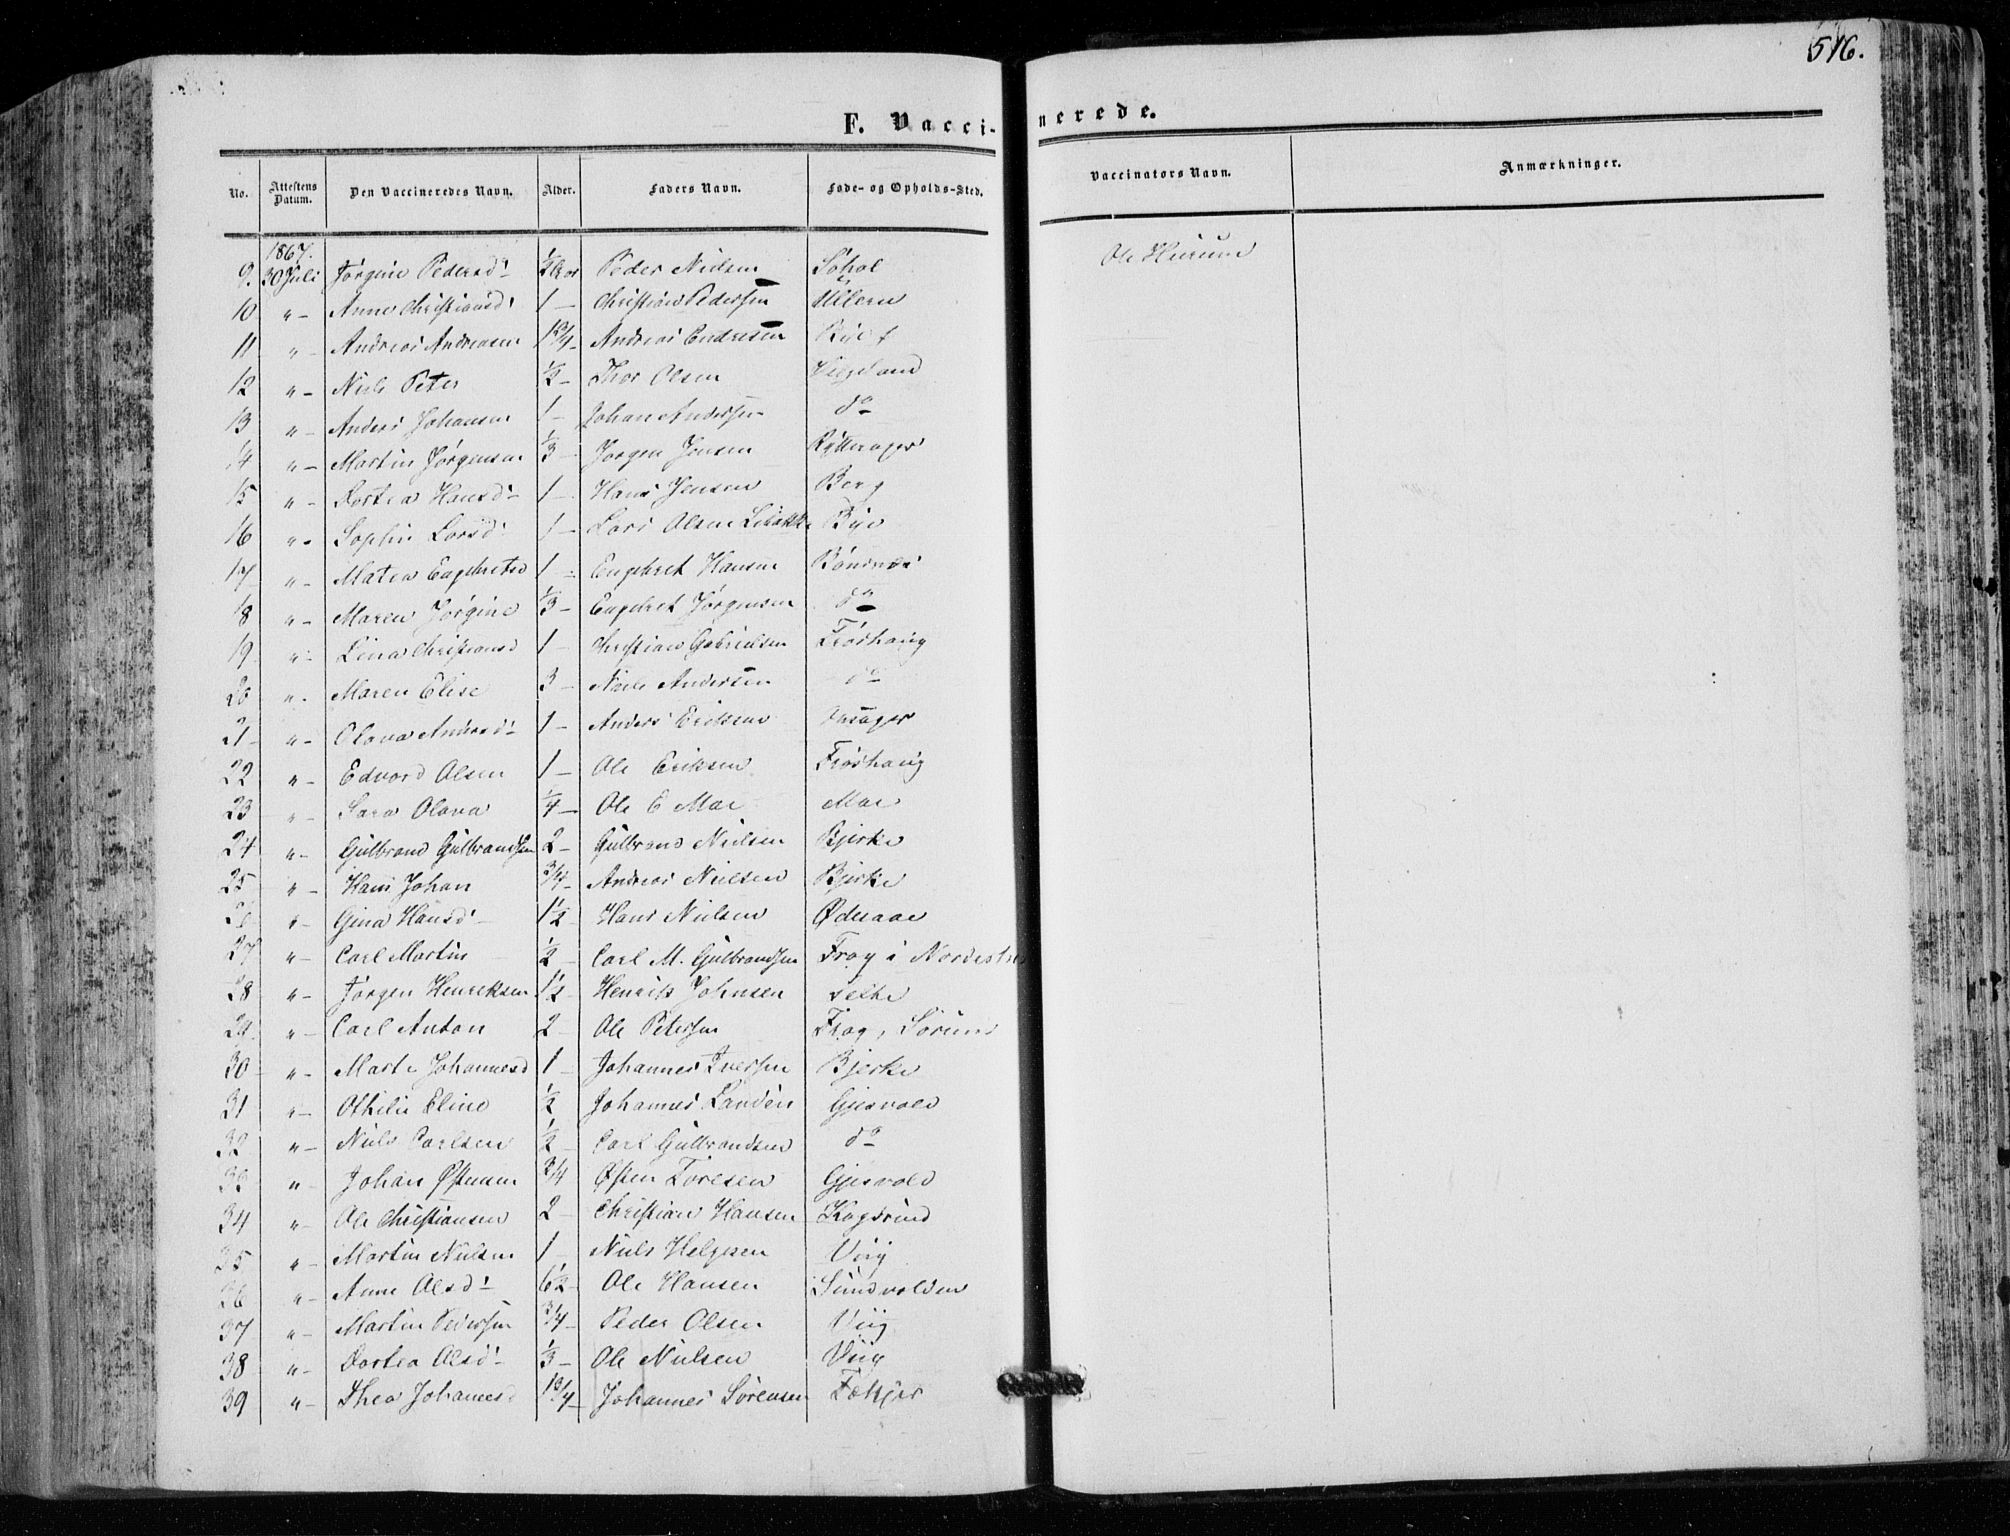 516.
F. Vaccinerede.
No. Attestens Datum. Den Vaccineredes Navn. Alder. Faders Navn. Føde- og Opholds-Sted. Vaccinators Navn. Anmærkninger.
1867.
9. 30 Juli Jørgine Pedersd: 1/2 Peder Nielsen Søhol Ole Hurum
10 " Anne Christiansd: 1 Christian Pedersen Ullern
11 " Andreas Andreasen 1 3/4 Andreas Endresen
12 " Niels Peter 1/2 Thor Olsen Viegeland
13 " Anders Johansen 1 Johan Andersen do
14 " Martin Jørgensen 1/3 Jørgen Jensen Rytterager
15 " Dortea Hansd: 1 Hans Jensen Berg
16 " Sophie Larsd: 1 Lars Olsen Bye
17 " Matea Engebretsd 1 Engebret Hansen Bønsnæs
18 " Maren Jørgine 1/3 Engebret Jørgensen do
19 " Lina Christiansd 1 Christian Gabrielsen Frøshaug
20 " Maren Elise 3 Niels Andersen do
21 " Olava Andersd: 1 Anders Eriksen Onsager
22 " Edvard Olsen 1 Ole Eriksen Frøshaug
23 " Sara Olava 1/4 Ole E Moe Moe
24 " Gulbrand Gulbrandsen 2 Gulbrand Nielsen Bjerke
25 " Hans Johan 3/4 Andreas Nielsen Bjerke
26 " Gina Hansd: 1 1/2 Hans Nielsen
27 " Carl Martin 1/2 Carl M. Gulbrandsen Frog i
28 " Jørgen Henriksen 1 1/2 Henrik Johnsen Selte
29 " Carl Anton 2 Ole Petersen Frog, Sørum
30 " Marte Johannesd 1 Johannes Iversen Bjerke
31 " Othilie Eline 1/2 Johannes Landen Gjesvold
32 " Niels Carlsen 1/2 Carl Gulbrandsen do
33 " Johan Østensen 3/4 Østen Toresen Gjesvold
34 " Ole Christiansen 2 Christian Hansen Kragsrud
35 " Martin Nielsen 1 Niels Helgesen Viig
36 " Anne Olsd: 6 1/2 Ole Hansen Sundvolden
37 " Martin Pedersen 3/4 Peder Olsen Viig
38 " Dortea Olsd: 1/3 Ole Nielsen Viig
39 " Thea Johannesd 1 3/4 Johannes Sørensen Fækjer